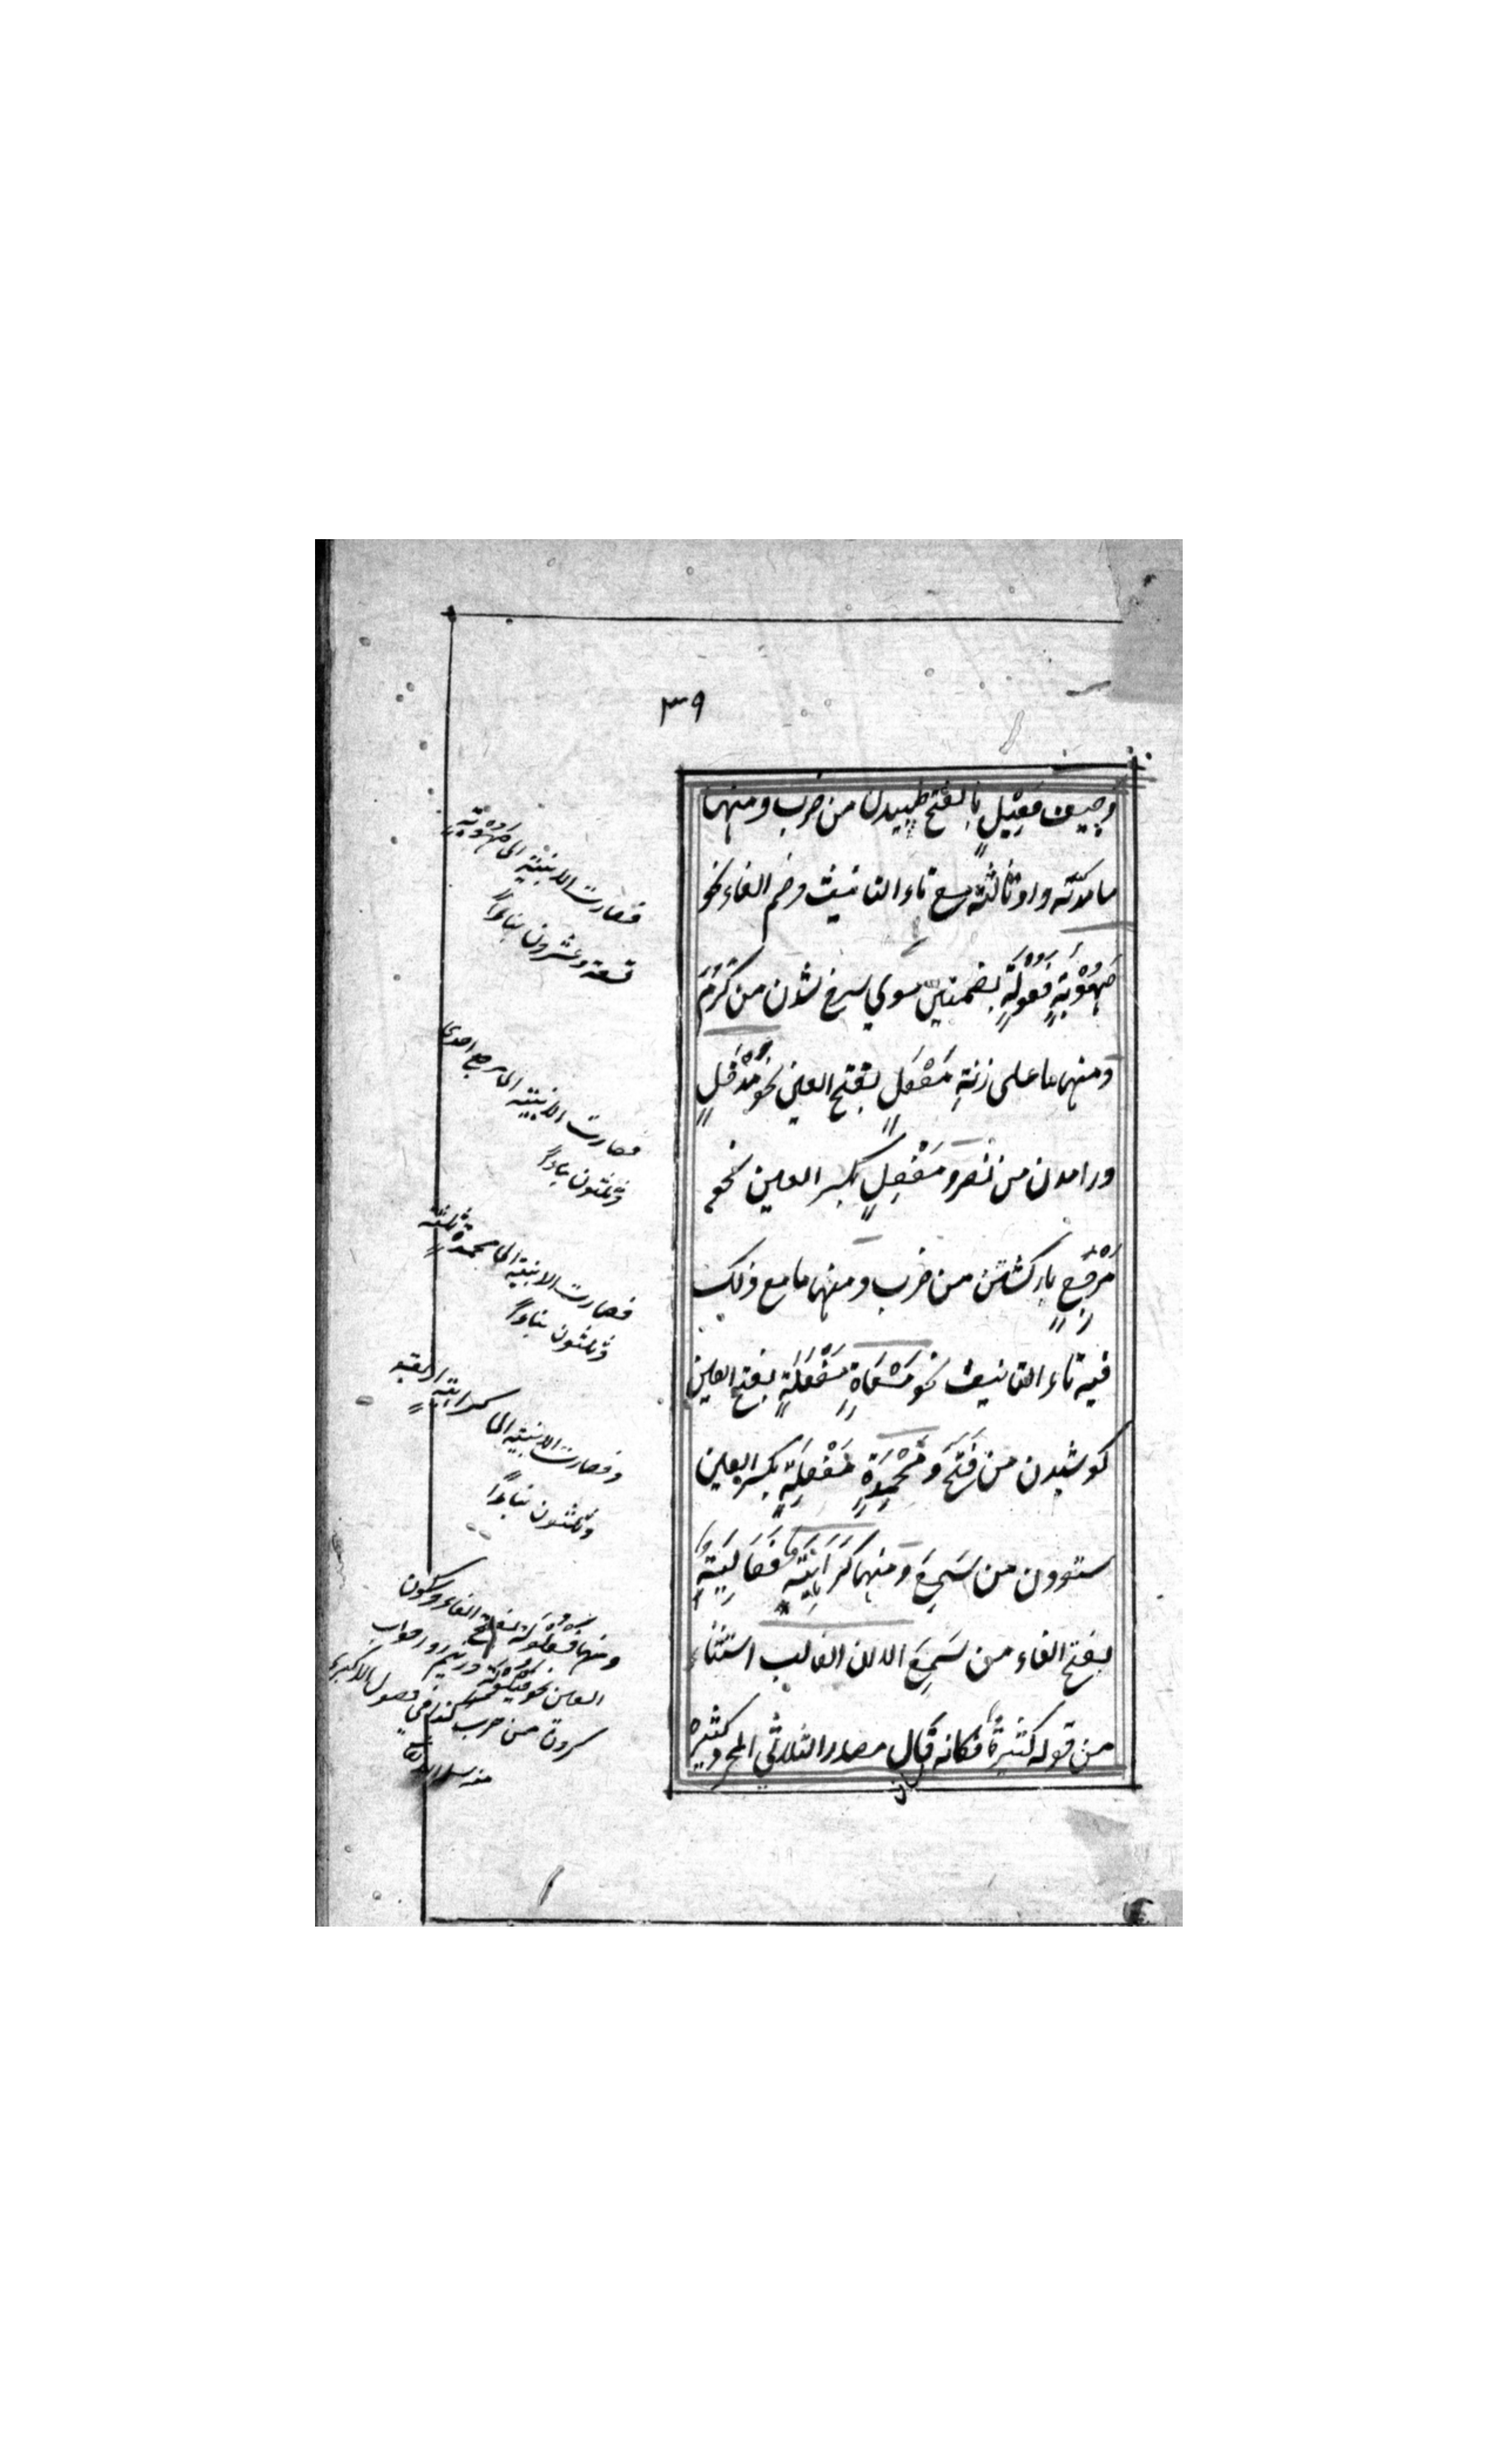 ٣٩
وجيف فَعِيْلٍ بالفتح طپيدن من ضرب ومنها
ما مدته واو ثالثة مع تاء التانيث وضم الفاء نحو
صُهُوْبَةٍ فُعُوْلَةٍ بضمتين سوي سرخ شدن من كَرُمَ
ومنها ما على زنة مَفْعَلٍ بفتح العين نحو مَدْخَلٍ
درامدن من نصر ومَفْعِلٍ بكسر العين نحو
مَرْجِعٍ باز كشتن من ضرب ومنها ما مع ذلك
فيه تاء التانيث نحو مَسْعَاةٍ مَفْعَلَةٍ بفتح العين
كوشيدن من فَتَحَ ومَحْمِدَةٍ مَفْعِلَةٍ بكسر العين
ستودن من سَمِعَ ومنها كَرَاهِيَةٍ فَعَالِيَةٍ
بفتح الفاء من سَمِعَ الا ان الغالب استثناء
من قوله كثيرةٌ فكانه قال مصادر الثلاثي المجرد كثيرة
فصارت الابنية الى صُهُوْبَةٍ
تسعة وعشرون بناءً
فصارت الابنية الى مرجع احدى
وثلثون بناءً
فصارت الابنية الى محمدة ثلثة
وثلثون بناءً
وفصارت الابنية الى كراهية اربعة
وثلثون بناءً
ومنها فَعْلُولَة بفتح الفاء وسكون
العين نحو قيلولة در نيم روز خواب
كردن من ضرب كذا في فصول الاكبري
منه